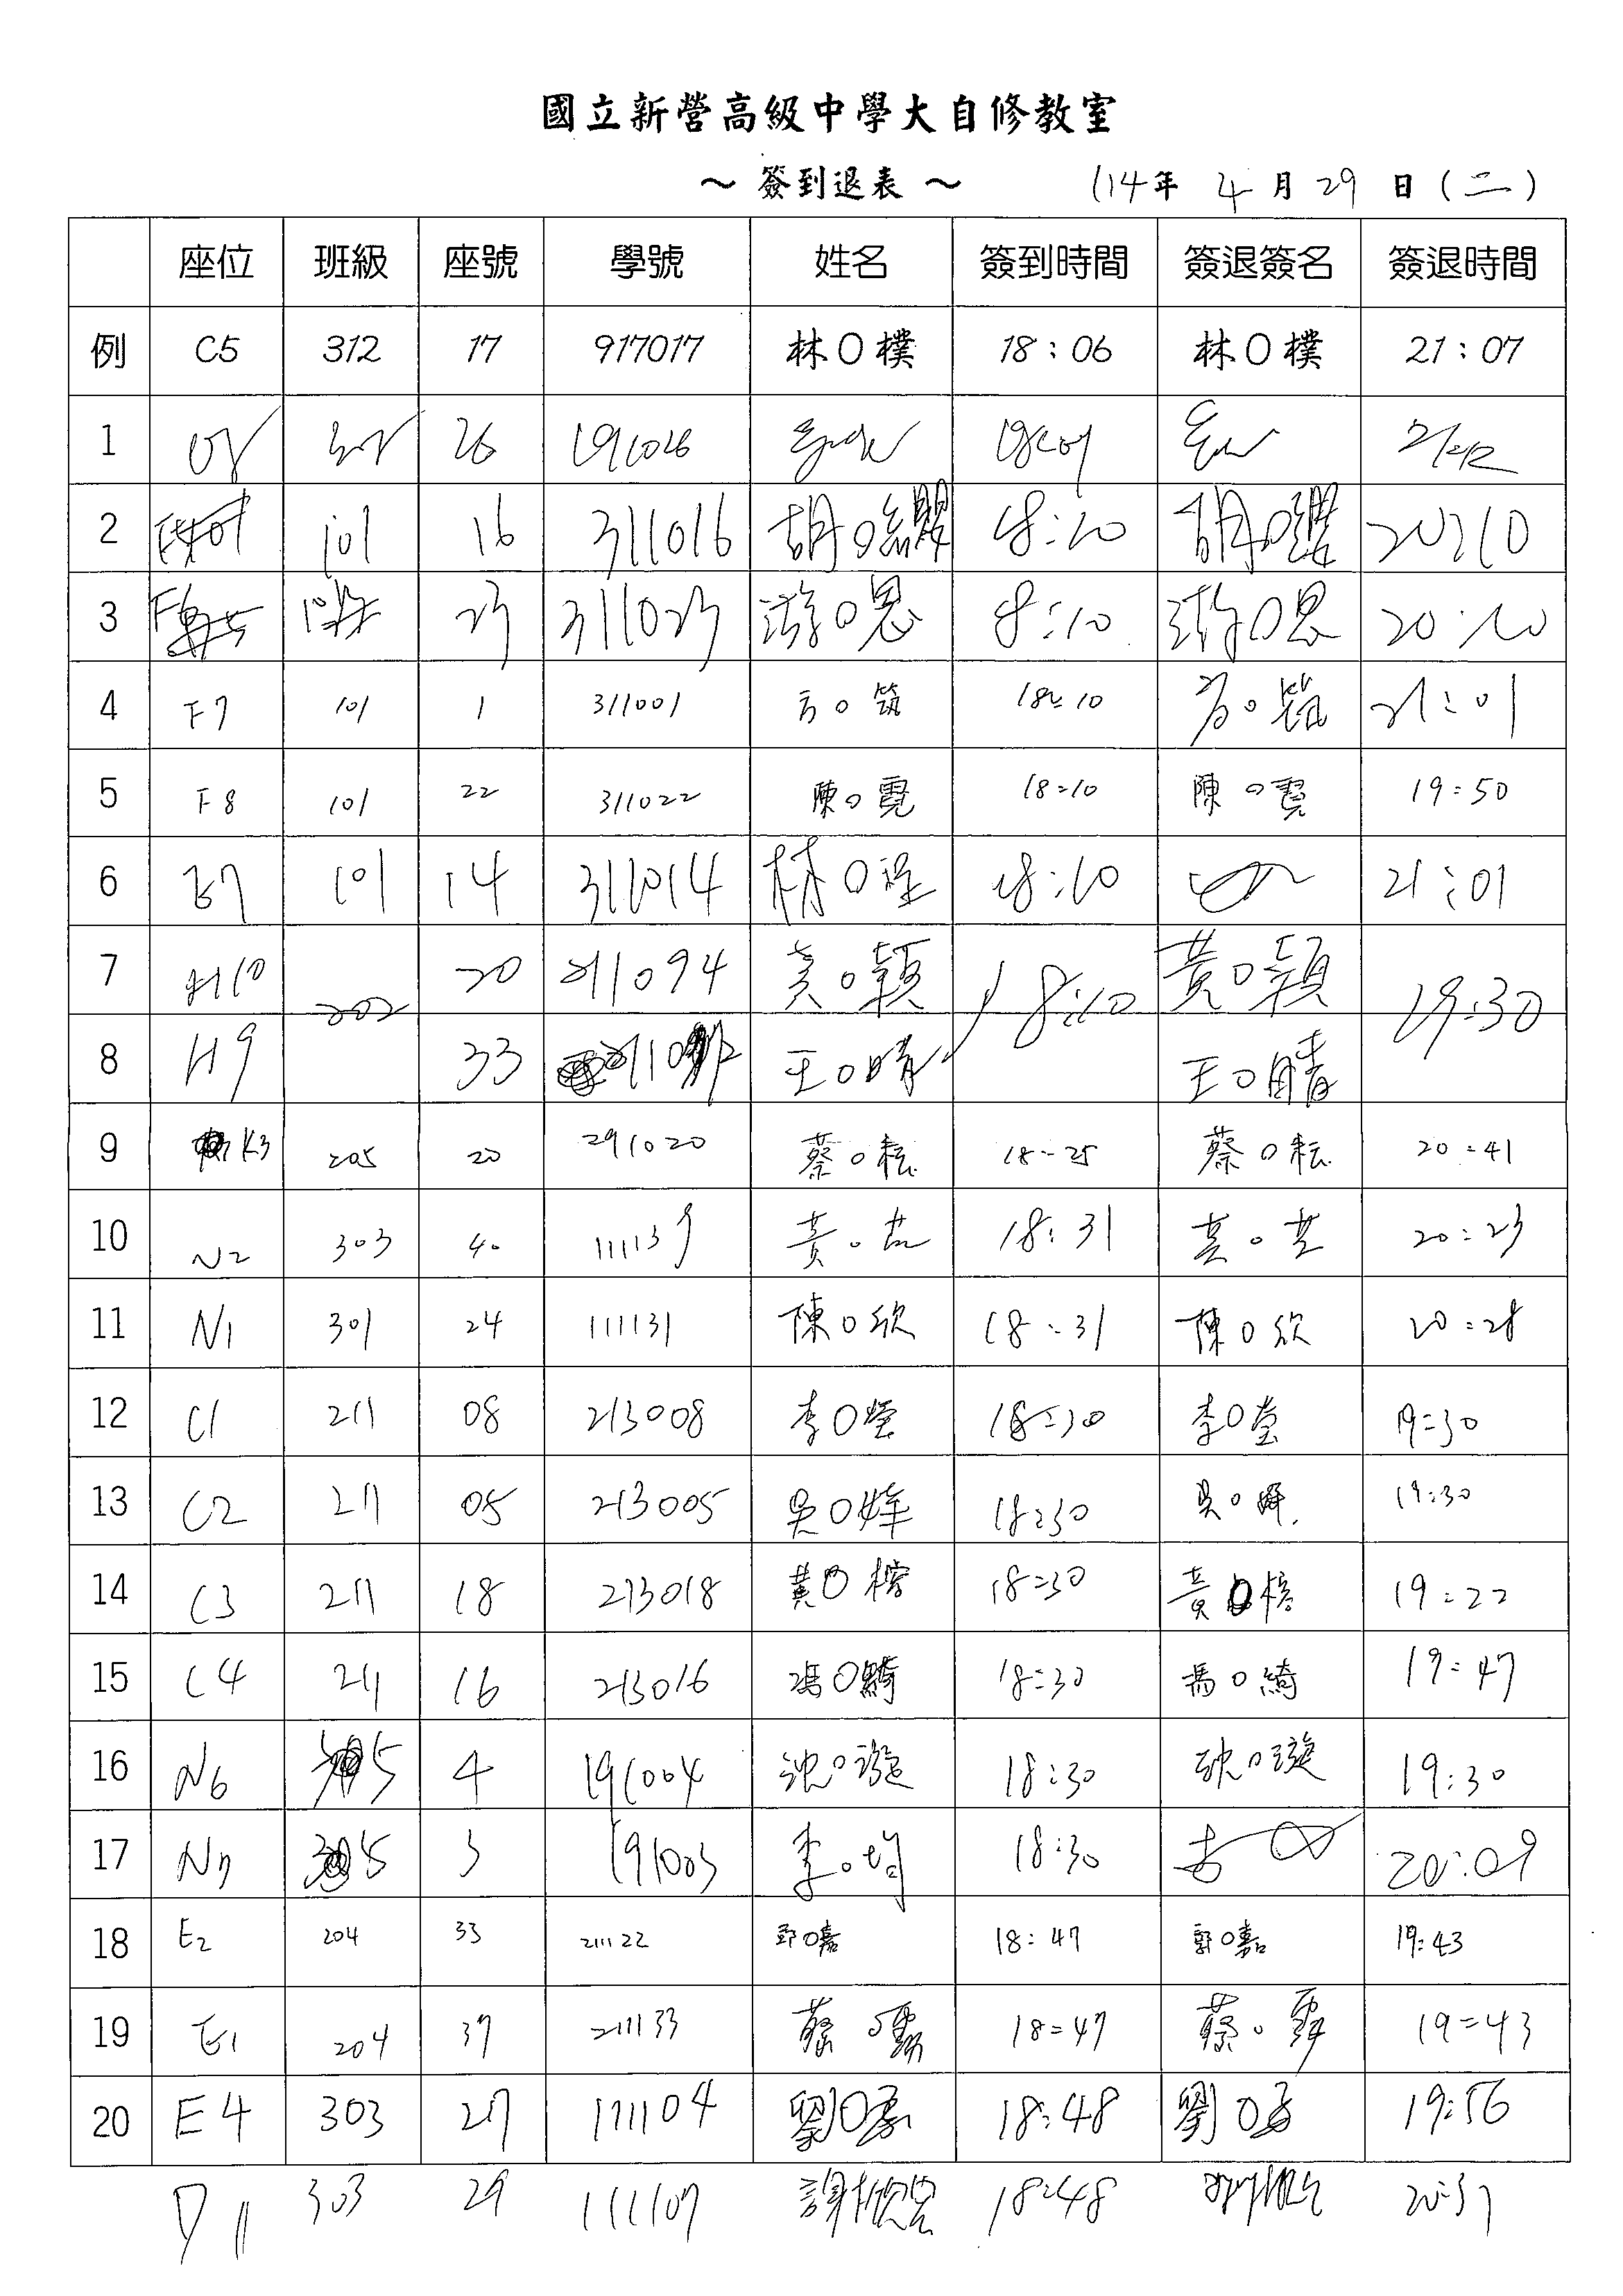 國立新營高級中學大自修教室
～ 簽到退表 ～ 114年 4月29日(二)
座位 班級 座號 學號 姓名 簽到時間 簽退簽名 簽退時間
例 C5 312 17 917017 林O樸 18：06 林O樸 21：07
1 26 191026
2 101 16 311016 胡O 18:10 胡O 20:10
3 23 311023 游O恩 18:10 游O恩 20:10
4 F7 101 1 311001 方O筑 18:10 方O筑 21:01
5 F8 101 22 311022 陳O霓 18:10 陳O霓 19:50
6 E7 101 14 311014 林O 18:10 21:01
7 H10 202 20 211094 黃O穎 18:10 黃O穎 19:30
8 H9 33 王O晴 王O晴
9 K3 205 20 291020 蔡O耘 18:25 蔡O耘 20:41
10 N2 303 40 111139 黃O 18:31 黃O 20:23
11 N1 301 24 111131 陳O欣 18:31 陳O欣 20:28
12 C1 211 08 213008 李O瑩 18:30 李O 19:30
13 C2 211 05 213005 吳O 18:30 吳O 19:30
14 C3 211 18 213018 黃O榕 18:30 黃O榕 19:22
15 C4 211 16 213016 馮O綺 18:30 馮O綺 19:47
16 N6 4 191004 沈O璇 18:30 沈O璇 19:30
17 N7 3 191003 李O 18:30 20:09
18 E2 204 33 211122 郭O嘉 18:47 郭O嘉 19:43
19 E1 204 37 211133 蔡O 18:47 蔡O 19:43
20 E4 303 27 111104 劉O 18:48 劉O 19:56
303 29 111107 謝 18:48 20:37